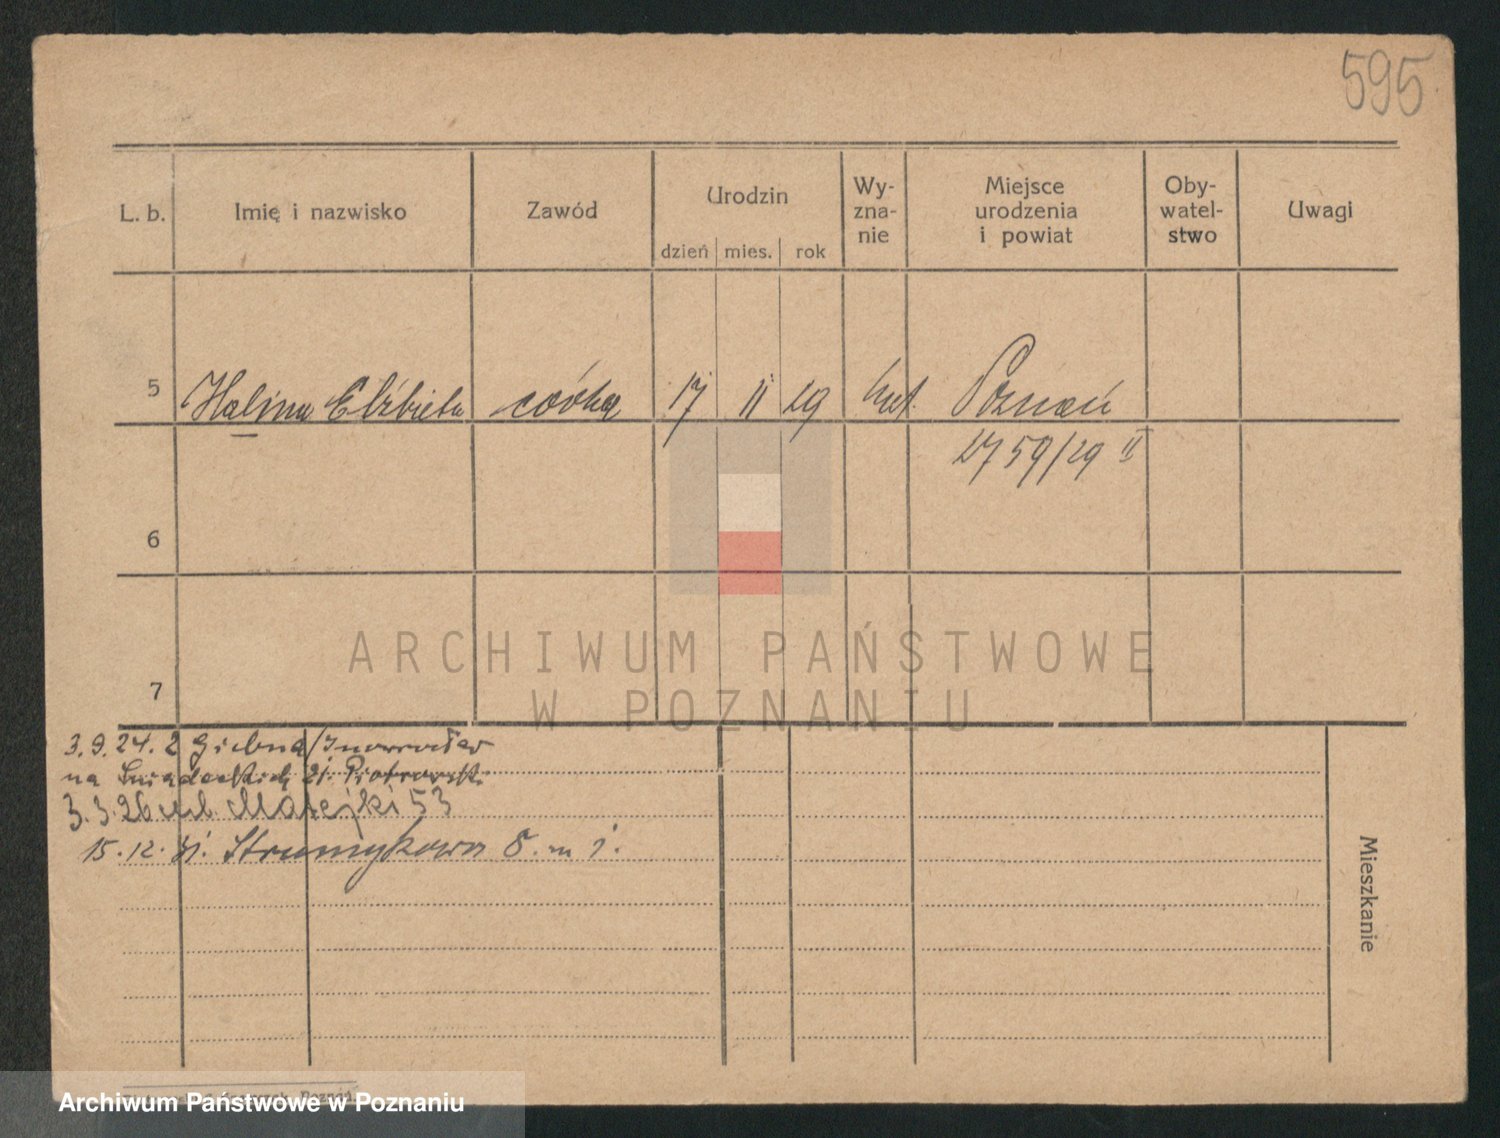 595
L. b.
Imię i nazwisko
Zawód
Urodzin
dzień mies. rok
Wy-
zna-
nie
Miejsce
urodzenia
i powiat
Oby-
watel-
stwo
Uwagi
5 Halina Elżbieta córka 17 II 29 kat. Poznań
2759/29 II
6
7
ARCHIWUM PAŃSTWOWE
W POZNANIU
3.9.24. z Inowrocław
na Śniadeckich 21. Piotrowski
3.3.26 ul. Matejki 53
15.12.31. Strumykowa 8. m 1.
Mieszkanie
Archiwum Państwowe w Poznaniu